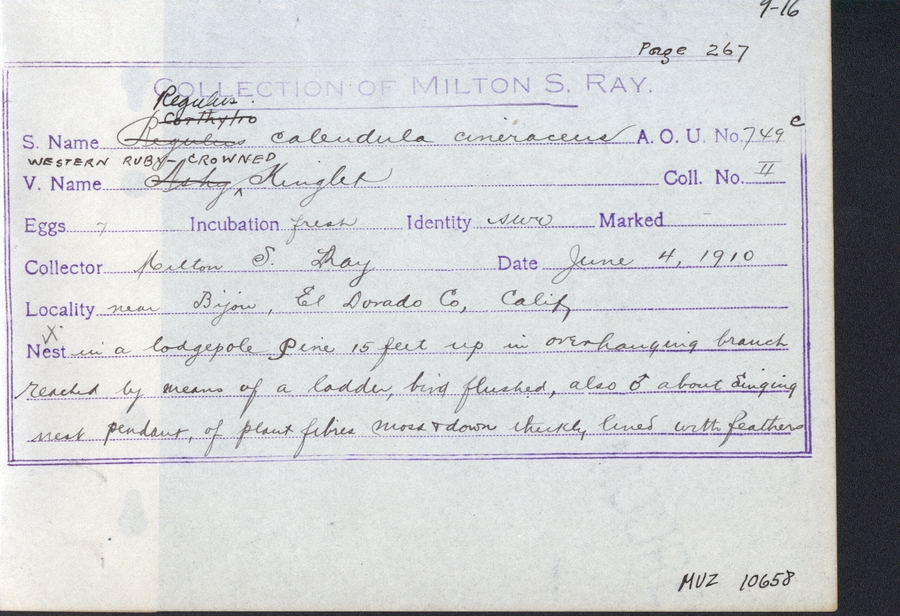 9-16
Page 267
COLLECTION OF MILTON S. RAY.
Regulus.
Corthylio
S. Name Regulus calendula cineraceus A. O. U. No. 749c
WESTERN RUBY-CROWNED
V. Name Ashy ^ Kinglet Coll. No. II
Eggs 7 Incubation fresh Identity sure Marked –
Collector Milton S. Ray Date June 4, 1910
Locality near Bijou, El Dorado Co, Calif
X
Nest in a lodgepole Pine 15 feet up in overhanging branch
reached by means of a ladder, bird flushed, also ♂ about singing
nest pendant, of plant fibres moss & down thickly lined with feathers
MVZ 10658